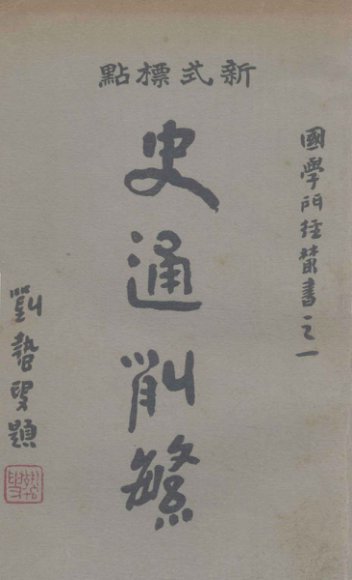 新式標點
國學門徑叢書之一
史通削繁
劉蟄叟題